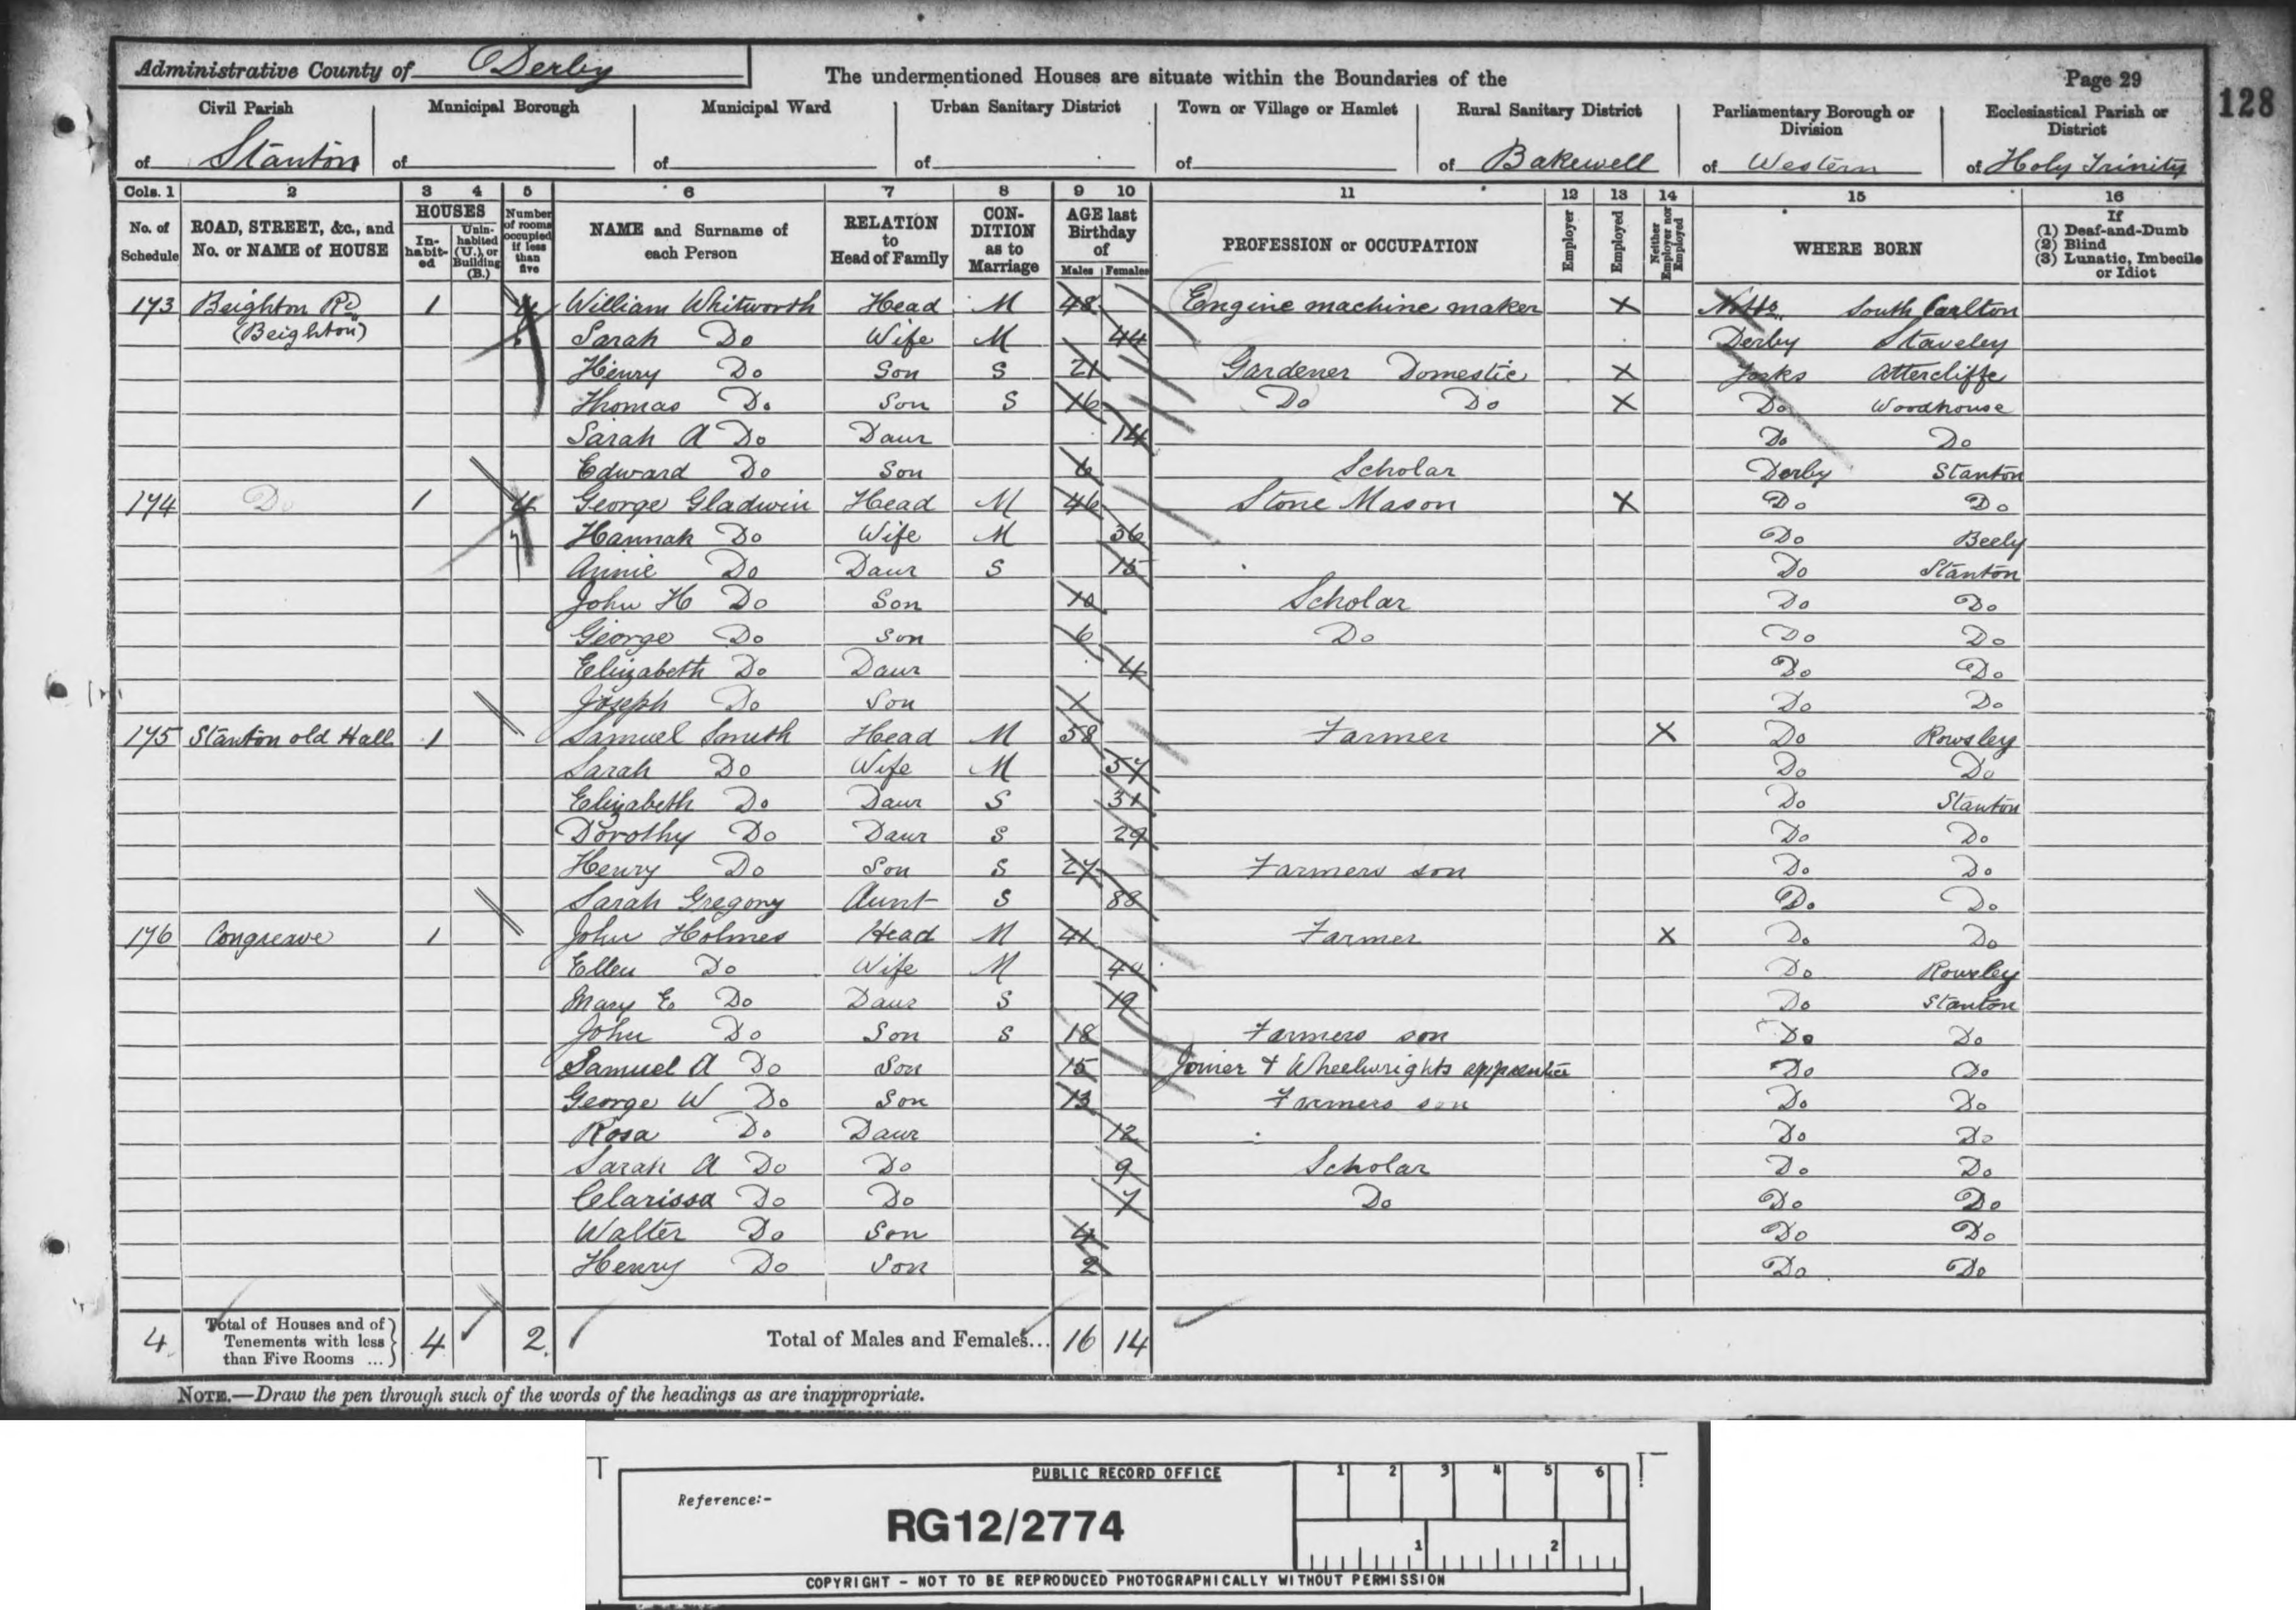 Administrative County of Derby
The undermentioned Houses are situate within the Boundaries of the
Page 29
128
Civil Parish of Stanton
Municipal Borough of
Municipal Ward of
Urban Sanitary District of
Town or Village or Hamlet of
Rural Sanitary District of Bakewell
Parliamentary Borough or Division of Western
Ecclesiastical Parish or District of Holy Trinity
Cols. 1 2 3 4 5 6 7 8 9 10 11 12 13 14 15 16
No. of Schedule
ROAD, STREET, &c., and No. or NAME of HOUSE
HOUSES
In-habit-ed
Unin-habited (U.), or Building (B.)
Number of rooms occupied if less than five
NAME and Surname of each Person
RELATION to Head of Family
CON-DITION as to Marriage
AGE last Birthday of
Males Females
PROFESSION or OCCUPATION
Employer
Employed
Neither Employer nor Employed
WHERE BORN
If (1) Deaf-and-Dumb (2) Blind (3) Lunatic, Imbecile or Idiot
173 Beighton Rd 1 4 William Whitworth Head M 48 Engine machine maker X Notts South Carlton
(Beighton) Sarah Do Wife M 44 Derby Staveley
Henry Do Son S 21 Gardener Domestic X Yorks Attercliffe
Thomas Do Son S 16 Do Do X Do Woodhouse
Sarah A Do Daur 14 Do Do
Edward Do Son 6 Scholar Derby Stanton
174 Do 1 4 George Gladwin Head M 46 Stone Mason X Do Do
Hannah Do Wife M 36 Do Beely
Annie Do Daur S 15 Do Stanton
John H Do Son 10 Scholar Do Do
George Do Son 6 Do Do Do
Elizabeth Do Daur 4 Do Do
Joseph Do Son 1 Do Do
175 Stanton old Hall 1 Samuel Smith Head M 58 Farmer X Do Rowsley
Sarah Do Wife M 57 Do Do
Elizabeth Do Daur S 31 Do Stanton
Dorothy Do Daur S 29 Do Do
Henry Do Son S 27 Farmers son Do Do
Sarah Gregory Aunt S 88 Do Do
176 Congreave 1 John Holmes Head M 41 Farmer X Do Do
Ellen Do Wife M 40 Do Rowsley
Mary E Do Daur S 19 Do Stanton
John Do Son S 18 Farmers son Do Do
Samuel A Do Son 15 Joiner & Wheelwrights apprentice Do Do
George W Do Son 13 Farmers son Do Do
Rosa Do Daur 12 Do Do
Sarah A Do Do 9 Scholar Do Do
Clarissa Do Do 7 Do Do Do
Walter Do Son 4 Do Do
Henry Do Son 2 Do Do
4 Total of Houses and of Tenements with less than Five Rooms ... 4 2 Total of Males and Females... 16 14
NOTE.—Draw the pen through such of the words of the headings as are inappropriate.
PUBLIC RECORD OFFICE
1 2 3 4 5 6
Reference:-
RG12/2774
1 2
COPYRIGHT - NOT TO BE REPRODUCED PHOTOGRAPHICALLY WITHOUT PERMISSION